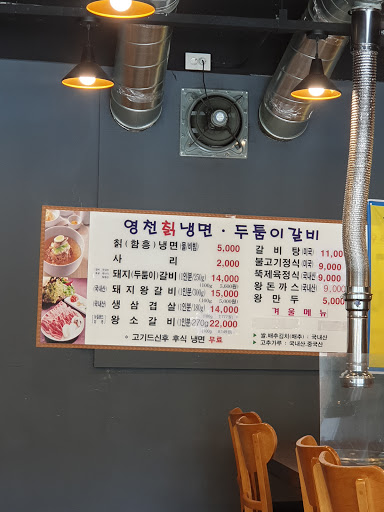 영천칡냉면 · 두툼이갈비
칡(함흥)냉면(물/비빔) 5,000
사리 2,000
돼지(두툼이)갈비(1인분/250g) 14,000
(국내산) 돼지왕갈비(1인분/300g) 15,000
(국내산) 생삼겹살(1인분/180g) 14,000
왕소갈비(1인분/270g) 22,000
* 고기드신후 후식 냉면 무료
갈비탕(미국) 11,000
불고기정식(미국) 9,000
뚝제육정식(국내산) 9,000
왕돈까스(국내산) 9,000
왕만두 5,000
겨울메뉴
▷ 쌀,배추김치(배추) : 국내산
▷ 고추가루 : 국내산,중국산